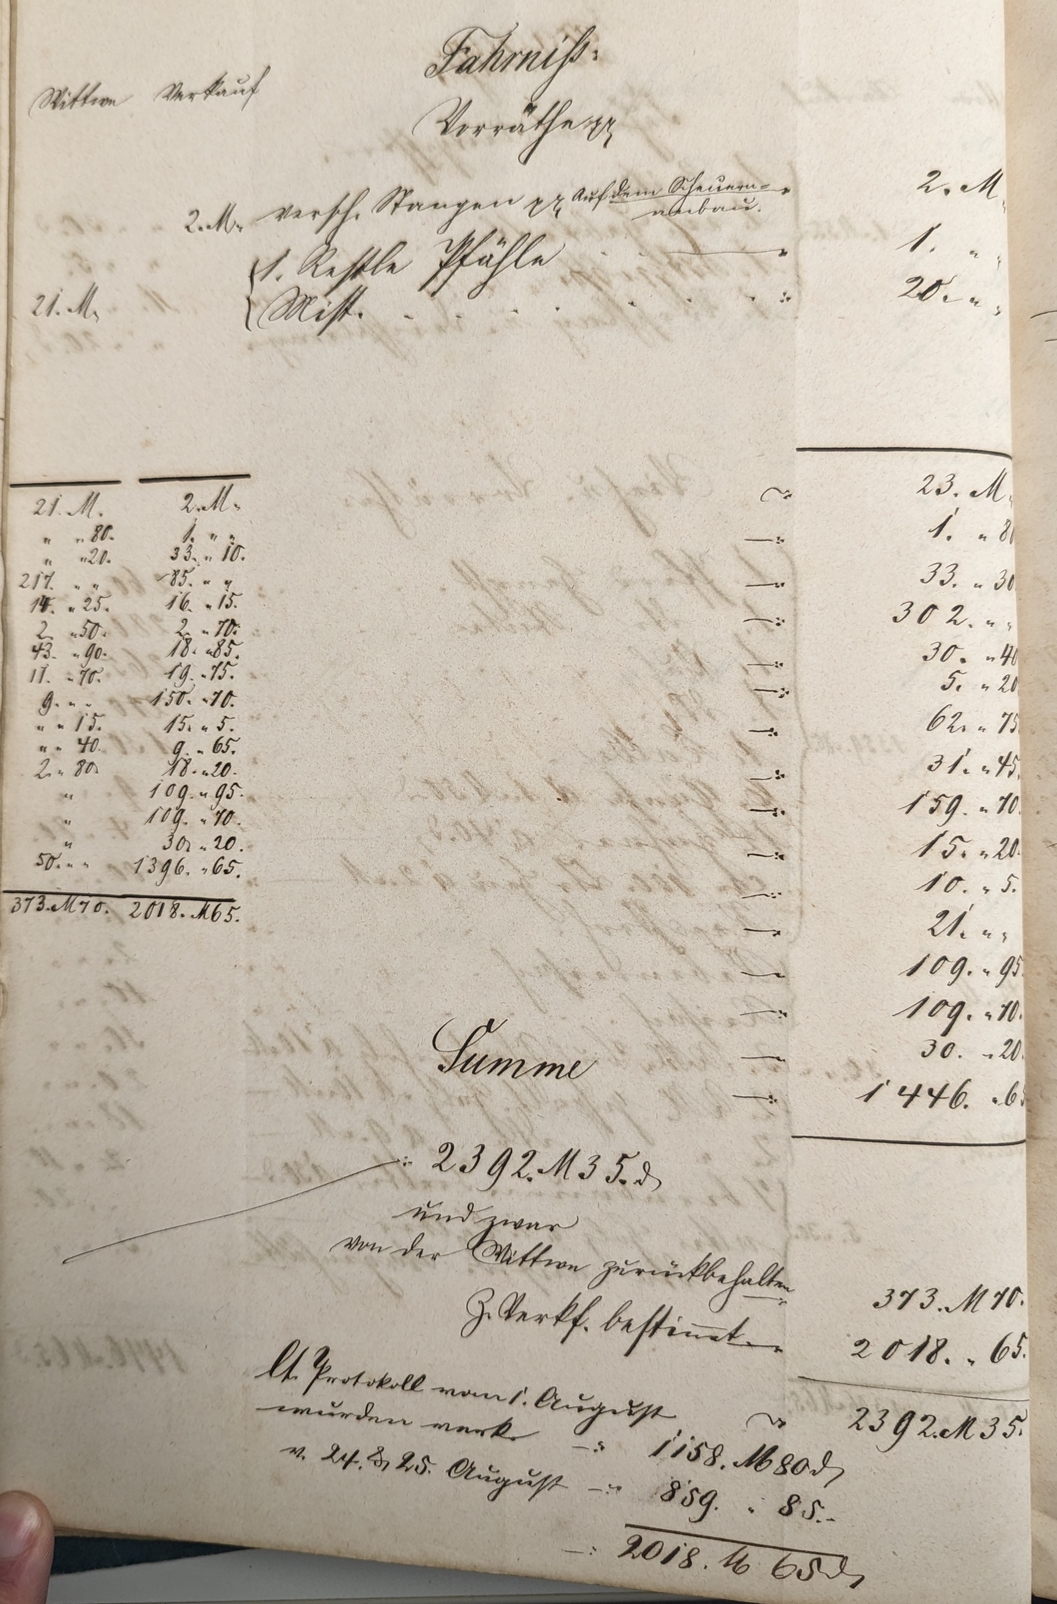 Fahrniß:
Wittwe Verkauf
Vorräthe pp
2. M. versch. Stangen pp Auf dem Scheuern= 2. M.
anbau.
1. Restle Pfähle 1. " "
21. M. Mist. 20. " "
21. M. 2. M. 23. M.
" " 80. 1. " " 1. " 80
" " 20. 33. " 10. 33. " 30
217. " " 85. " " 302. " "
14. " 25. 16. " 15. 30. " 40
2. " 50. 2. " 70. 5. " 20
43. " 90. 18. " 85. 62. " 75
11. " 70. 19. " 75. 31. " 45
9. " " 150. " 70. 159. " 70
" " 15. 15. " 5. 15. " 20.
" " 40. 9. " 65. 10. " 5.
2. " 80. 18. " 20. 21. " "
" 109. " 95. 109. " 95
" 109. " 70. 109. " 70.
" 30. " 20. 30. " 20
50. " " 1396. " 65. 1446. " 65
373. M 70. 2018. M 65.
Summe
2392. M 35. d
und zwar
von der Wittwe zurückbehalten 373. M 70.
z. Verkf. bestimmt 2018. " 65.
2392. M 35.
lt. Protokoll vom 1. August
wurden verk. 1158. M 80 d
v. 24. & 25. August 859. " 85.
2018. M 65 d